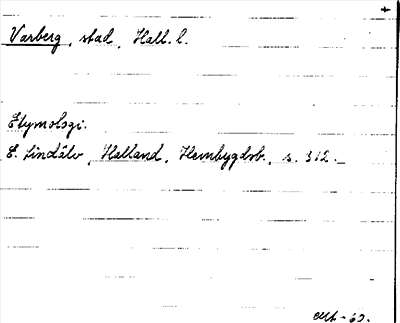 Varberg, stad, Hall. l.
Etymologi.
E. Lindälv, Halland, Hembygdsb., s. 312.